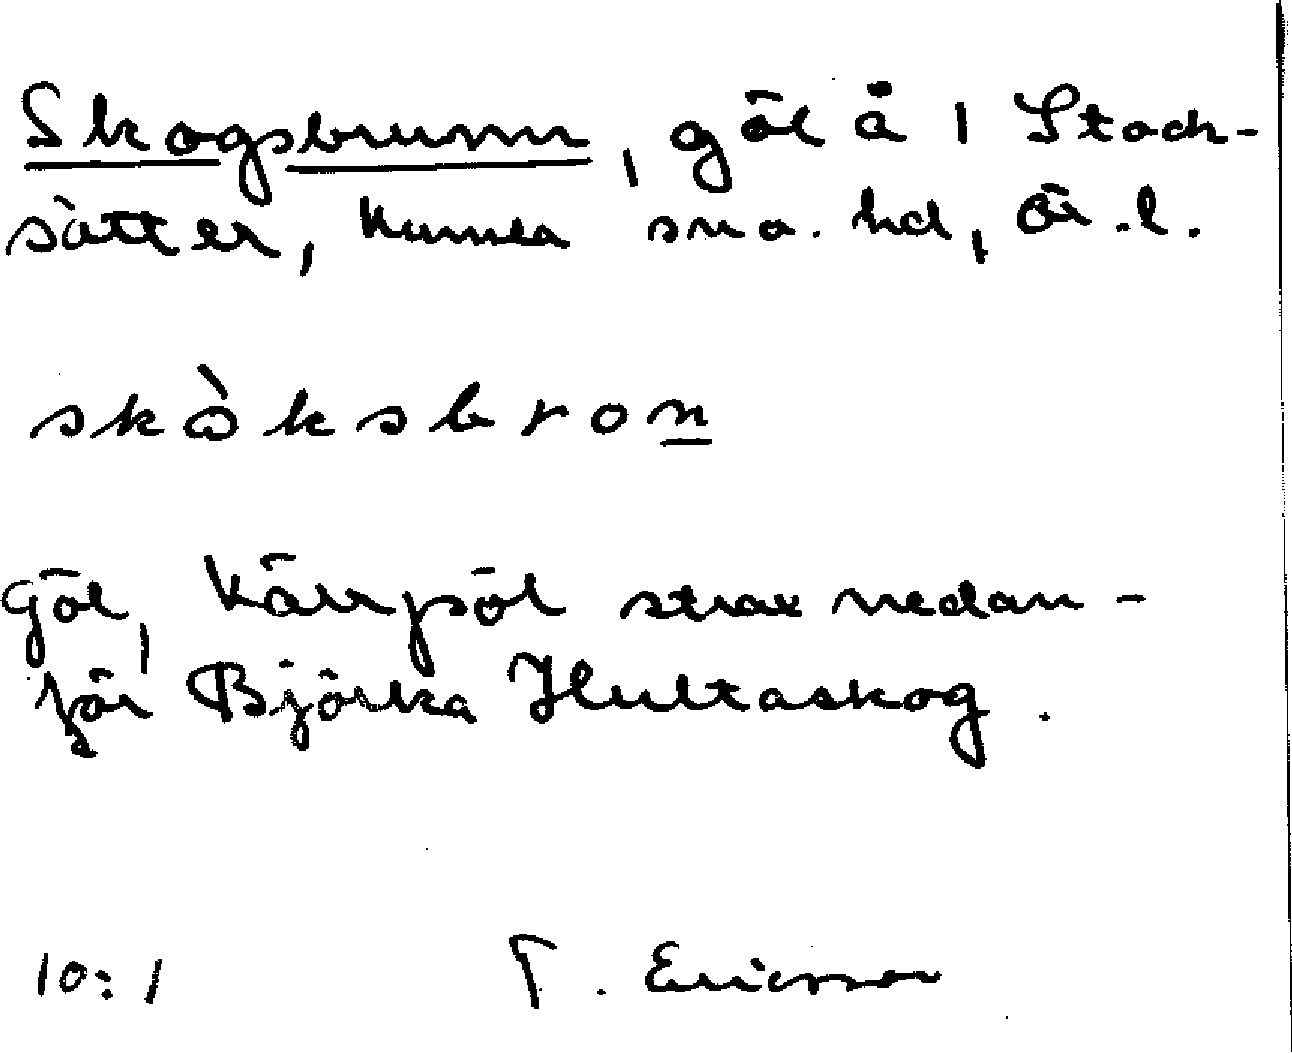 Skogsbrunn, göl å 1 Stock-
sätter, Kumla sn o. hd, Ör. l.
skòksbron
Göl, kärrpöl strax nedan-
för Björka Hultaskog.
10:1 T. Ericsson